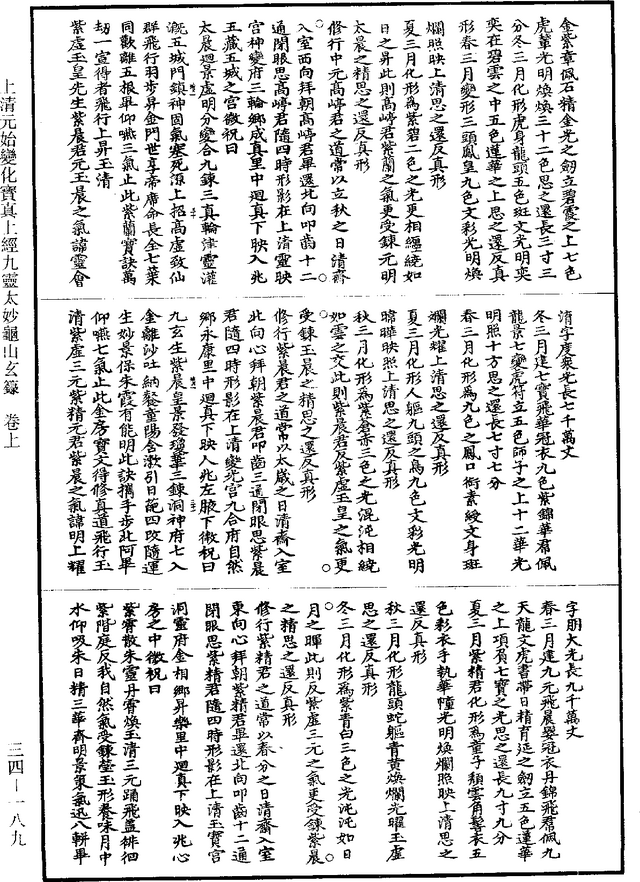 金紫章佩石精金光之劒立碧霞之上七色
虎輩光明煥煥三十二色思之還長三寸三
分冬三月化形虎身龍頭五色斑文光明奕
奕在碧雲之中五色蓮華之上思之還反真
形春三月變形三頭鳳皇九色文彩光明煥
爛照映上清思之還反真形
夏三月化形為紫碧二色之光更相纏繞如
日之昇此則高崝君紫蘭之氣更受鍊元明
太晨之精思之還反真形
修行中元高崝君之道常以立秋之日清齋
入室西向拜朝高崝君畢還北向叩齒十二
通閉眼思高崝君隨四時形影在上清靈映
宮神變府三輪鄉成真里中迴真下映入兆
五藏五城之宮微祝曰
太晨迴景虛明分變合九鍊三真輪津靈灌
溉五城門鎖神固氣塞死源上招高虛致仙
群飛行羽步昇金門世享帝膺命長全七葉
同歡離五根畢仰嚥三氣止此紫蘭寶訣萬
劫一宣得者飛行上昇玉清
紫虛玉皇先生紫晨君元玉晨之氣諱靈會
清字度衆光長七千萬丈
冬三月建七寶飛華冠衣九色紫錦華帬佩
龍景七變虎符立五色師子之上十二華光
明照十方思之還長七寸七分
春三月化形為九色之鳳口銜素綬文身斑
斕光耀上清思之還反真形
夏三月化形人軀九頭之鳥九色文彩光明
曄映照上清思之還反真形
秋三月化形為紫蒼赤三色之光混沌相繞
如雲之交此則紫晨君反紫虛玉皇之氣更
受鍊玉晨之精思之還反真形
修行紫晨君之道常以太歲之日清齋入室
北向心拜朝紫晨君叩齒三通閉眼思紫晨
君隨四時形影在上清變光宮九合府自然
鄉永康里中迴真下映入兆左腋下微祝曰
九玄生紫晨皇景發瓊華三鍊洞神府七入
金離沙吐納黎童陽含漱引日葩四炁隨運
生妙景保朱霞有能明此訣攜手步北阿畢
仰嚥七氣止此金房寶文得修真道飛行玉
清紫虛三元紫精元君紫晨之氣諱明上耀
字朋大光長九千萬丈
春三月建九元飛晨翠冠衣丹錦飛帬佩九
天龍文虎書帶日精育延之劒立五色蓮華
之上項負七寶之光思之還長九寸九分
夏三月紫精君化形為童子頹雲角髻衣五
色彩衣手執華幢光明煥爛照映上清思之
還反真形
秋三月化形龍頭蛇軀青黃煥爛光曜玉虛
思之還反真形
冬三月化形為紫青白三色之光沌沌如日
月之暉此則反紫虛三元之氣更受鍊紫晨
之精思之還反真形
修行紫精君之道常以春分之日清齋入室
東向心拜朝紫精君畢還北向叩齒十二通
閉眼思紫精君隨四時形影在上清玉寶宮
洞靈府金相鄉昇樂里中迴真下映入兆心
房之中微祝曰
紫霄散朱靈丹霄煥玉清三元踊飛蓋徘徊
紫階庭反我自然氣受鍊瑩玉形養味月中
水仰吸朱日精三華齊明景乘氣迅八軿畢
上清元始變化寶真上經九靈太妙龜山玄籙 卷上
三四—一八九